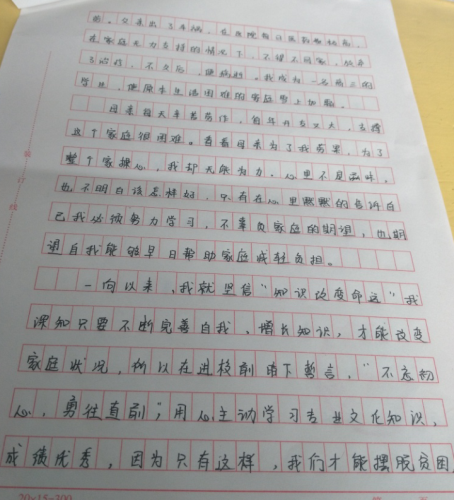 困。父亲出了车祸，在医院每日医药费很高，
在家庭无力支持的情况下，不得不回家，放弃
了治疗，不久后，他病逝。我成为一名高三的
学生，使原本生活困难的家庭雪上加霜。
母亲每天辛苦劳作，每年开支巨大，支撑
这个家庭很困难。看着母亲为了我劳累，为了
整个家操心，我却无能为力。心里不是滋味，
也不明白该怎样好，只有在心里默默的告诉自
己我必须努力学习，不辜负家庭的期望，也期
望自我能够早日帮助家庭减轻负担。
一向以来，我就坚信“知识改变命运”我
深知只要不断完善自我，增长知识，才能改变
家庭状况，所以在进校前萌下誓言，“不忘初
心，勇往直前”；用心主动学习专业文化知识，
成绩优秀，因为只有这样，我们才能摆脱贫困，
20×15=300